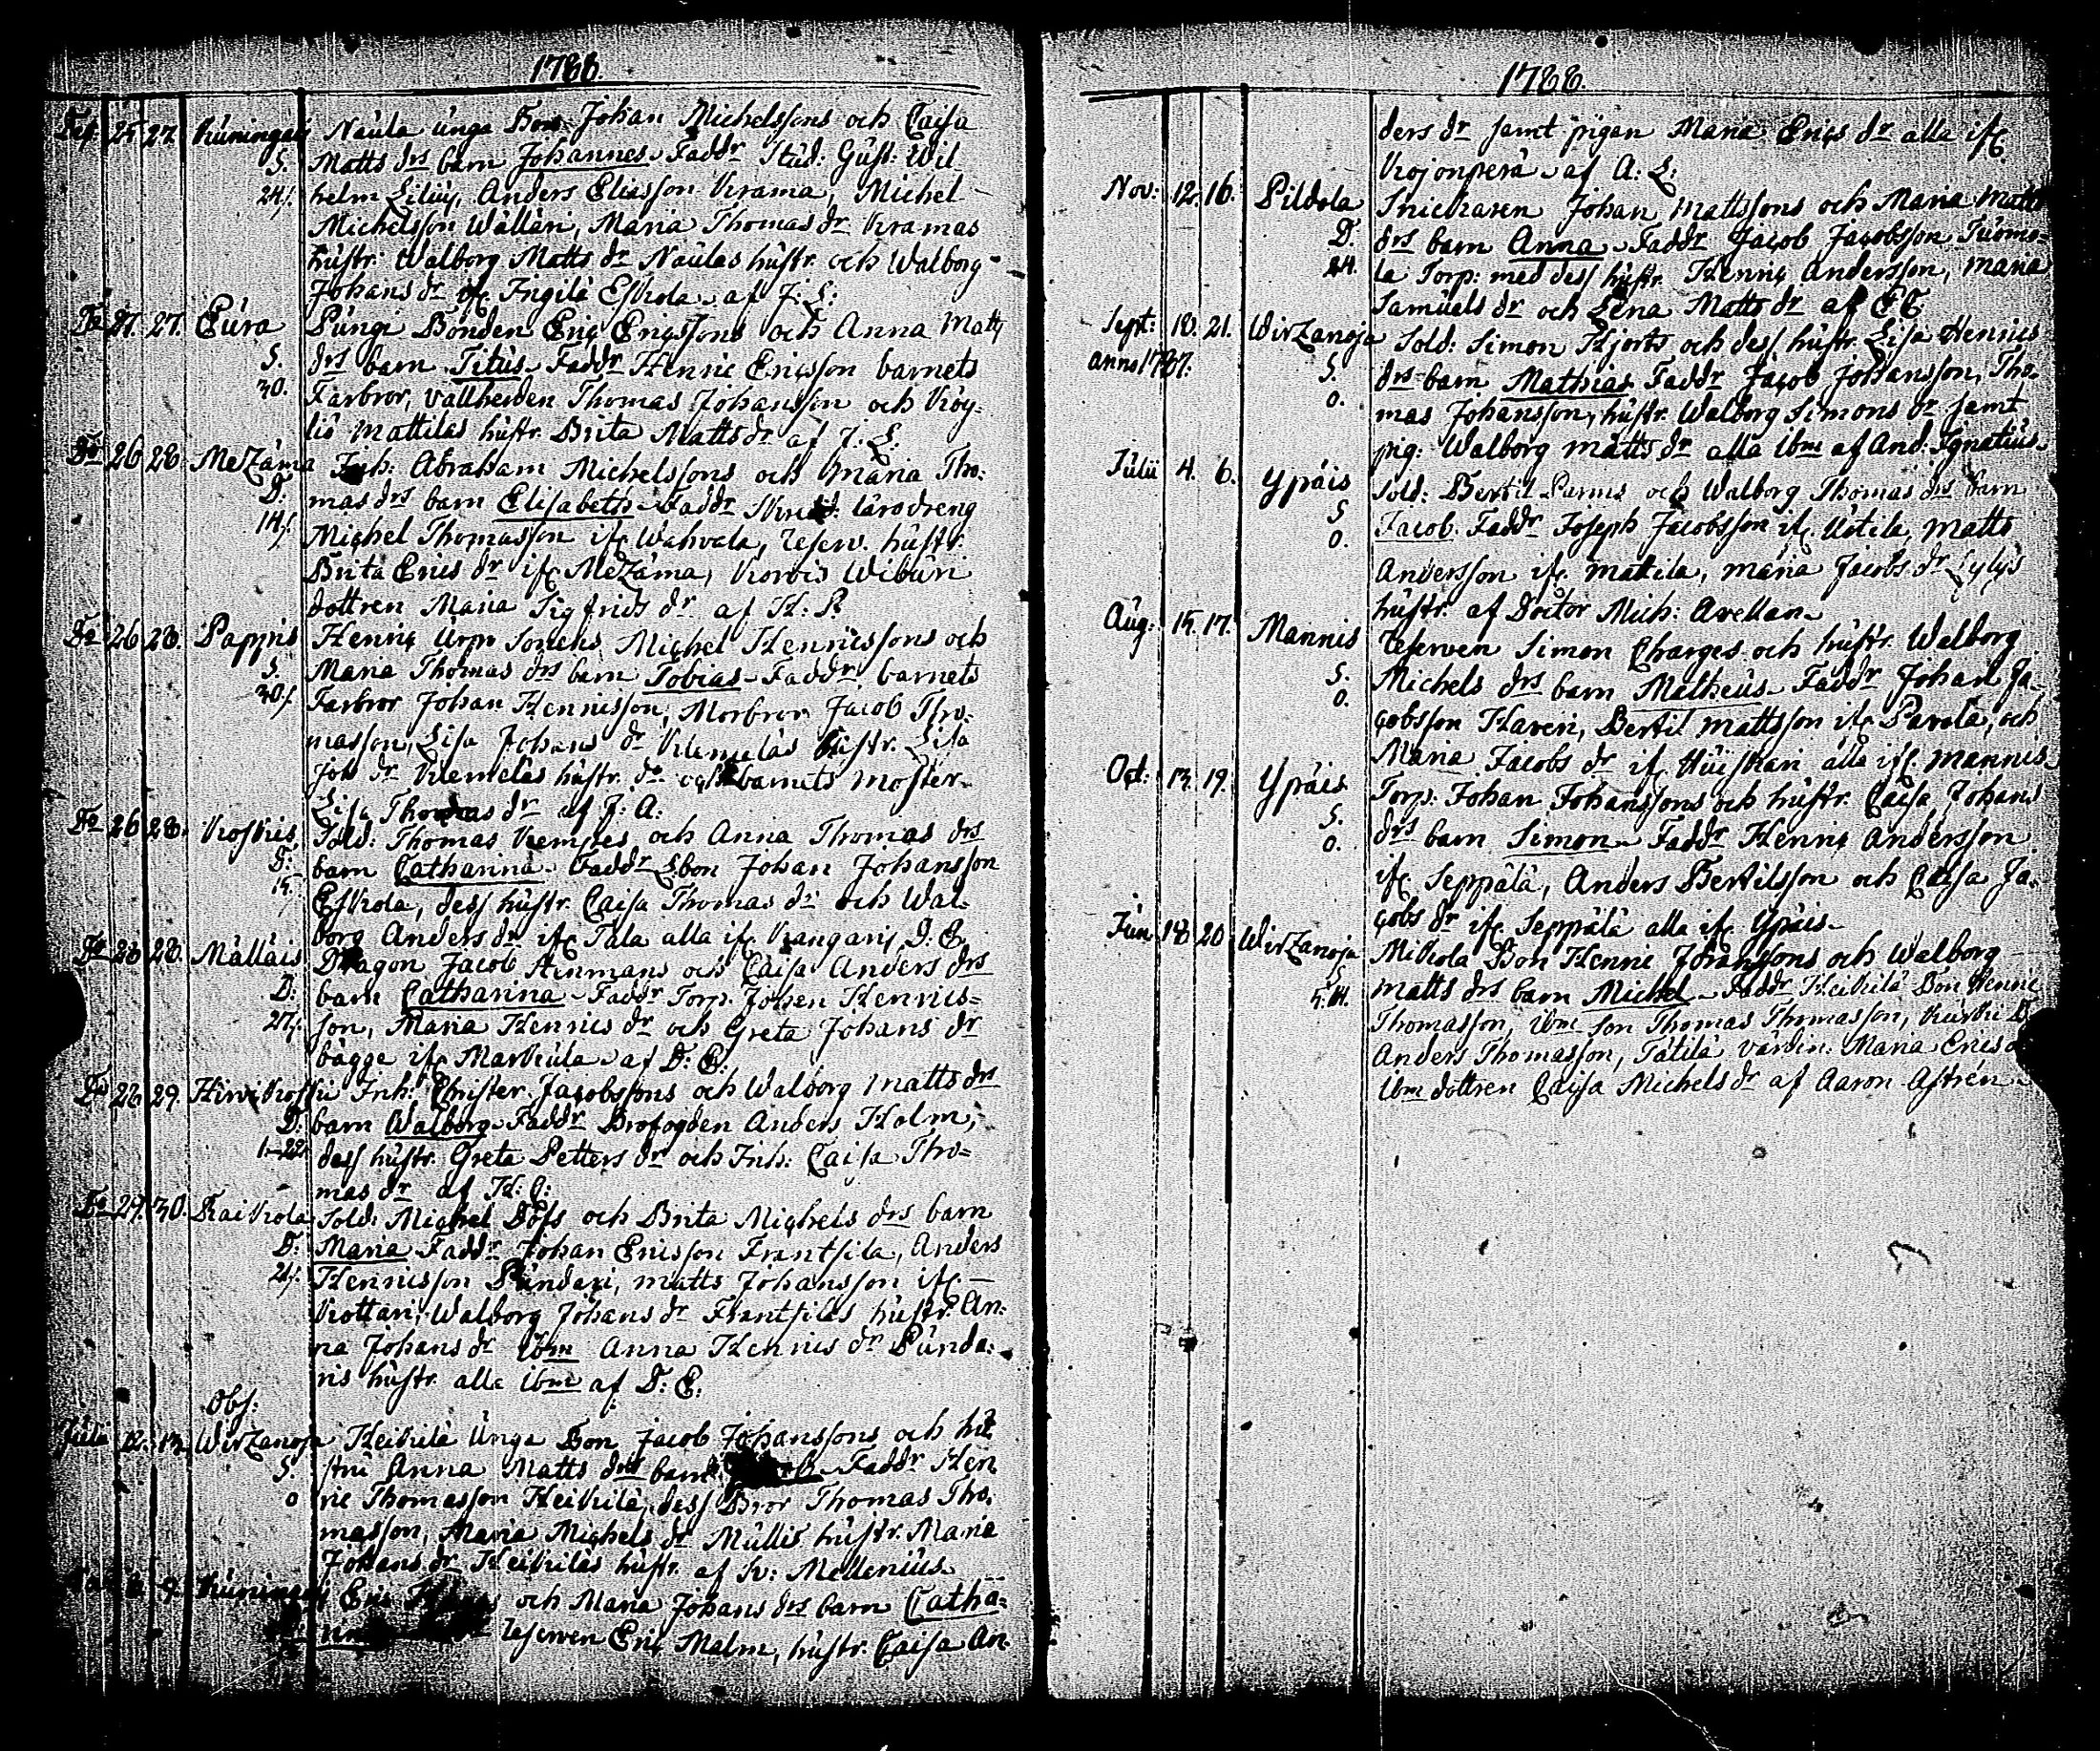 1788.
Dec: 25 27. Kuningais Naula unga Bon: Johan Michelssons och Caisa
S. Matts drs barn Johannes. Faddr Stud: Gust: Wil
24/. helm Lilius, Anders Eliasson Krama, Michel
Michelsson Wälläri, Maria Thomas dr Kramas
hustr: Walborg Matts dr Naulas hustr. och Walborg
Johans dr ifr. Eskola. af J: L:
Do 27. 27. Eura Pungi Bonden Eric Ericssons och Anna Matts
S. drs barn Titus. Faddr Henric Ericsson barnets
30. Farbror, vallherden Thomas Johansson och Köy-
liö Mattilas hustr. Brita Matts dr af J. L.
Do 26 28 Mezäma Inh: Abraham Michelssons och Maria Tho:
D: mas drs barn Elisabeth. Faddr lärodreng
14/. Michel Thomasson ifr. Wahvala, reserv. hustr.
Brita Erics dr ifr. Mezäma, Korvis Wiburi
dottren Maria Sigfrids dr af H: P.
Do 26 28. Pappis Henric sonens Michel Henricssons och
S. Maria Thomas drs barn Tobias. Faddr barnets
30/. Farbror Johan Henricsson, Morbror Jacob Tho-
masson, Lisa Johans dr hustr. Lisa
Joh dr Klemelas hustr. do och barnets moster
Lisa Thomas dr af J: A.
Do 26 28. Koskis, Sold: Thomas och Anna Thomas drs
D: barn Catharina. Faddr Bon Johan Johansson
15. Eskola, dess hustr. Caisa Thomas dr och Wal-
borg Anders dr ifr. Tala alla ifr. Kangaris D: E.
Do 28 28. Mälläis Dragon Jacob Henmans och Caisa Anders drs
D: barn Catharina. Faddr Torp. Johan Henrics=
27/. son, Maria Henrics dr och Greta Johans dr
bägge ifr. Markula. af D: E.
Do 28 29. Hirvikoski Inh: Christer Jacobssons och Walborg Matts drs
D: barn Walborg. Faddr Brofogden Anders Holm,
dess hustr. Greta Petters dr och Inh: Caisa Tho=
mas dr af H: O:
Do 29. 30. Raikola Sold: Michel Döfs och Brita Michels drs barn
D: Maria. Faddr Johan Ericsson Frantsila, Anders
24/. Henricsson Pundari, Matts Johansson ifr.
Kottari, Walborg Johans dr Frantsilas hustr. An:
na Johans dr ibm Anna Henrics dr Punda:
ris hustr. alla ibm af D: E:
Obs:
Julii 12. 13. Wirzanoja Heikilä Unga Bon Jacob Johanssons och hu
S. stru Anna Matts drs barn Faddr Hen
0 ric Thomasson Heikilä, dess Bror Thomas Tho:
masson, Maria Michels dr Mullis hustr. Maria
Johans dr Heikiläs hustr. af K: Mellenius.
9. Kuningais Eric och Maria Johans drs barn Catha=
reserven Eric Malm, hustr. Caisa An-
1788.
ders dr samt pigan Maria Erics dr alla ifr.
Kojonperä. af A: L:
Nov: 12. 16. Pildola Snickaren Johan Mattssons och Maria Matts
D. drs barn Anna. Faddr Jacob Jacobsson Tuomo-
24. la Torp: med dess hustr. Henric Andersson, Maria
Samuels dr och Lena Matts dr af E E
Sept: 18. 21. Wirzanoja Sold: Simon Hjorts och dess hustr. Lisa Henrics
anno 1787: S. drs barn Mathias. Faddr Jacob Johansson, Tho-
0. mas Johansson, hustr. Walborg Simons dr samt
pig: Walborg Matts dr alla ibm af And: Ignatius.
Julii 4. 6. Ypäis Sold: Bertil Parms och Walborg Thomas drs barn
S Jacob. Faddr Joseph Jacobsson ifr. Uotila, Matts
0. Andersson ifr. Matila, Maria Jacobs dr Lylys
hustr. af Doctor Mich: Avellan.
Aug: 15. 17. Mannis Reserven Simon Charges och hustr. Walborg
S. Michels drs barn Matheus. Faddr Johan Ja-
0. cobsson Haveri, Bertil Mattsson ifr. Pavola, och
Maria Jacobs dr ifr. Huiskan alla ifr. Mannis.
Oct: 13. 19. Ypäis Torp: Johan Johanssons och hustr. Caisa Johans
S. drs barn Simon. Faddr Henric Andersson
0. ifr. Seppälä, Anders Bertilsson och Caisa Ja-
cobs dr ifr. Seppälä alla ifr. Ypäis.
Jun 18 20 Wirzanoja Mikola Bon Henric Johanssons och Walborg
S Matts drs barn Michel. Faddr Heikilä Bon Henric
Thomasson, ibm son Thomas Thomasson, Kurki B
Anders Thomasson, Tätilä värdin: Maria Erics d
ibm dottren Caisa Michels dr af Aaron Astrén.